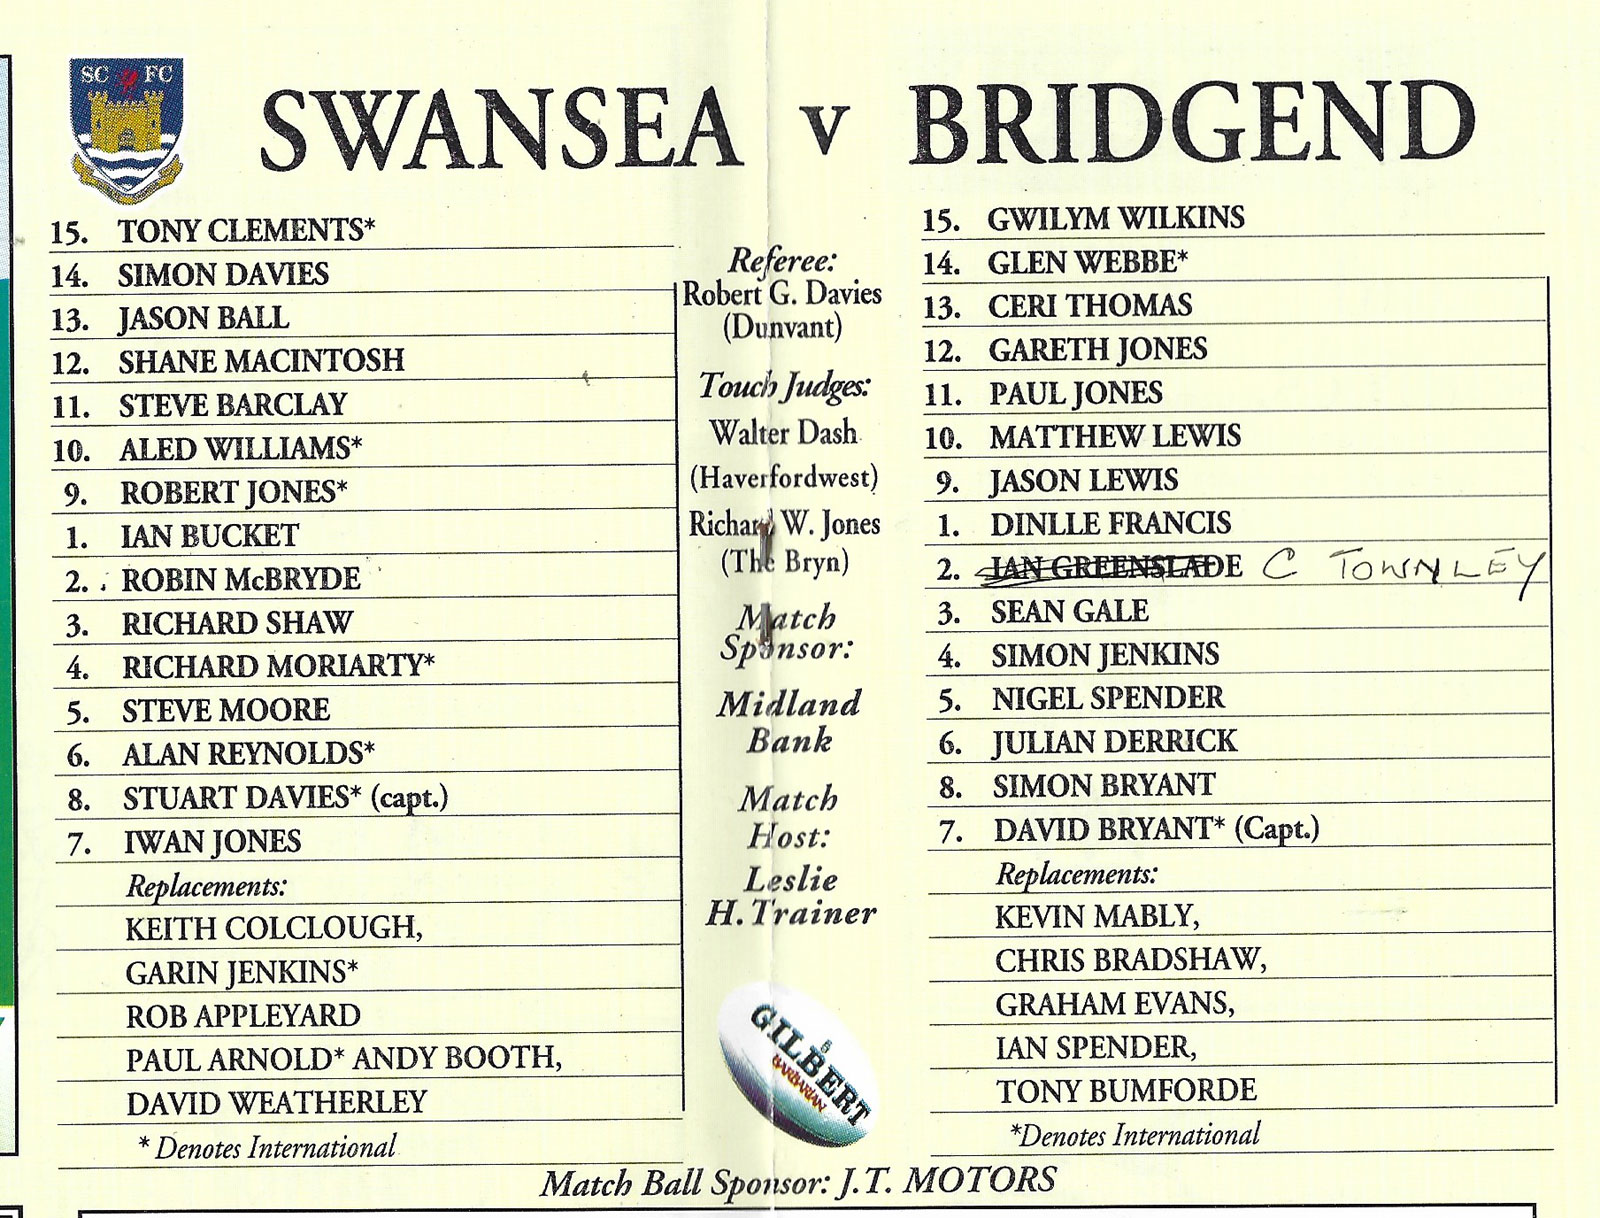 SC FC
SWANSEA v BRIDGEND
15. TONY CLEMENTS*
14. SIMON DAVIES
13. JASON BALL
12. SHANE MACINTOSH
11. STEVE BARCLAY
10. ALED WILLIAMS*
9. ROBERT JONES*
1. IAN BUCKET
2. ROBIN McBRYDE
3. RICHARD SHAW
4. RICHARD MORIARTY*
5. STEVE MOORE
6. ALAN REYNOLDS*
8. STUART DAVIES* (capt.)
7. IWAN JONES
Replacements:
KEITH COLCLOUGH,
GARIN JENKINS*
ROB APPLEYARD
PAUL ARNOLD* ANDY BOOTH,
DAVID WEATHERLEY
* Denotes International
Referee:
Robert G. Davies
(Dunvant)
Touch Judges:
Walter Dash
(Haverfordwest)
Richard W. Jones
(The Bryn)
Match
Sponsor:
Midland
Bank
Match
Host:
Leslie
H. Trainer
GILBERT
BARBARIAN
15. GWILYM WILKINS
14. GLEN WEBBE*
13. CERI THOMAS
12. GARETH JONES
11. PAUL JONES
10. MATTHEW LEWIS
9. JASON LEWIS
1. DINLLE FRANCIS
2. IAN GREENSLADE C TOWNLEY
3. SEAN GALE
4. SIMON JENKINS
5. NIGEL SPENDER
6. JULIAN DERRICK
8. SIMON BRYANT
7. DAVID BRYANT* (Capt.)
Replacements:
KEVIN MABLY,
CHRIS BRADSHAW,
GRAHAM EVANS,
IAN SPENDER,
TONY BUMFORDE
*Denotes International
Match Ball Sponsor: J.T. MOTORS